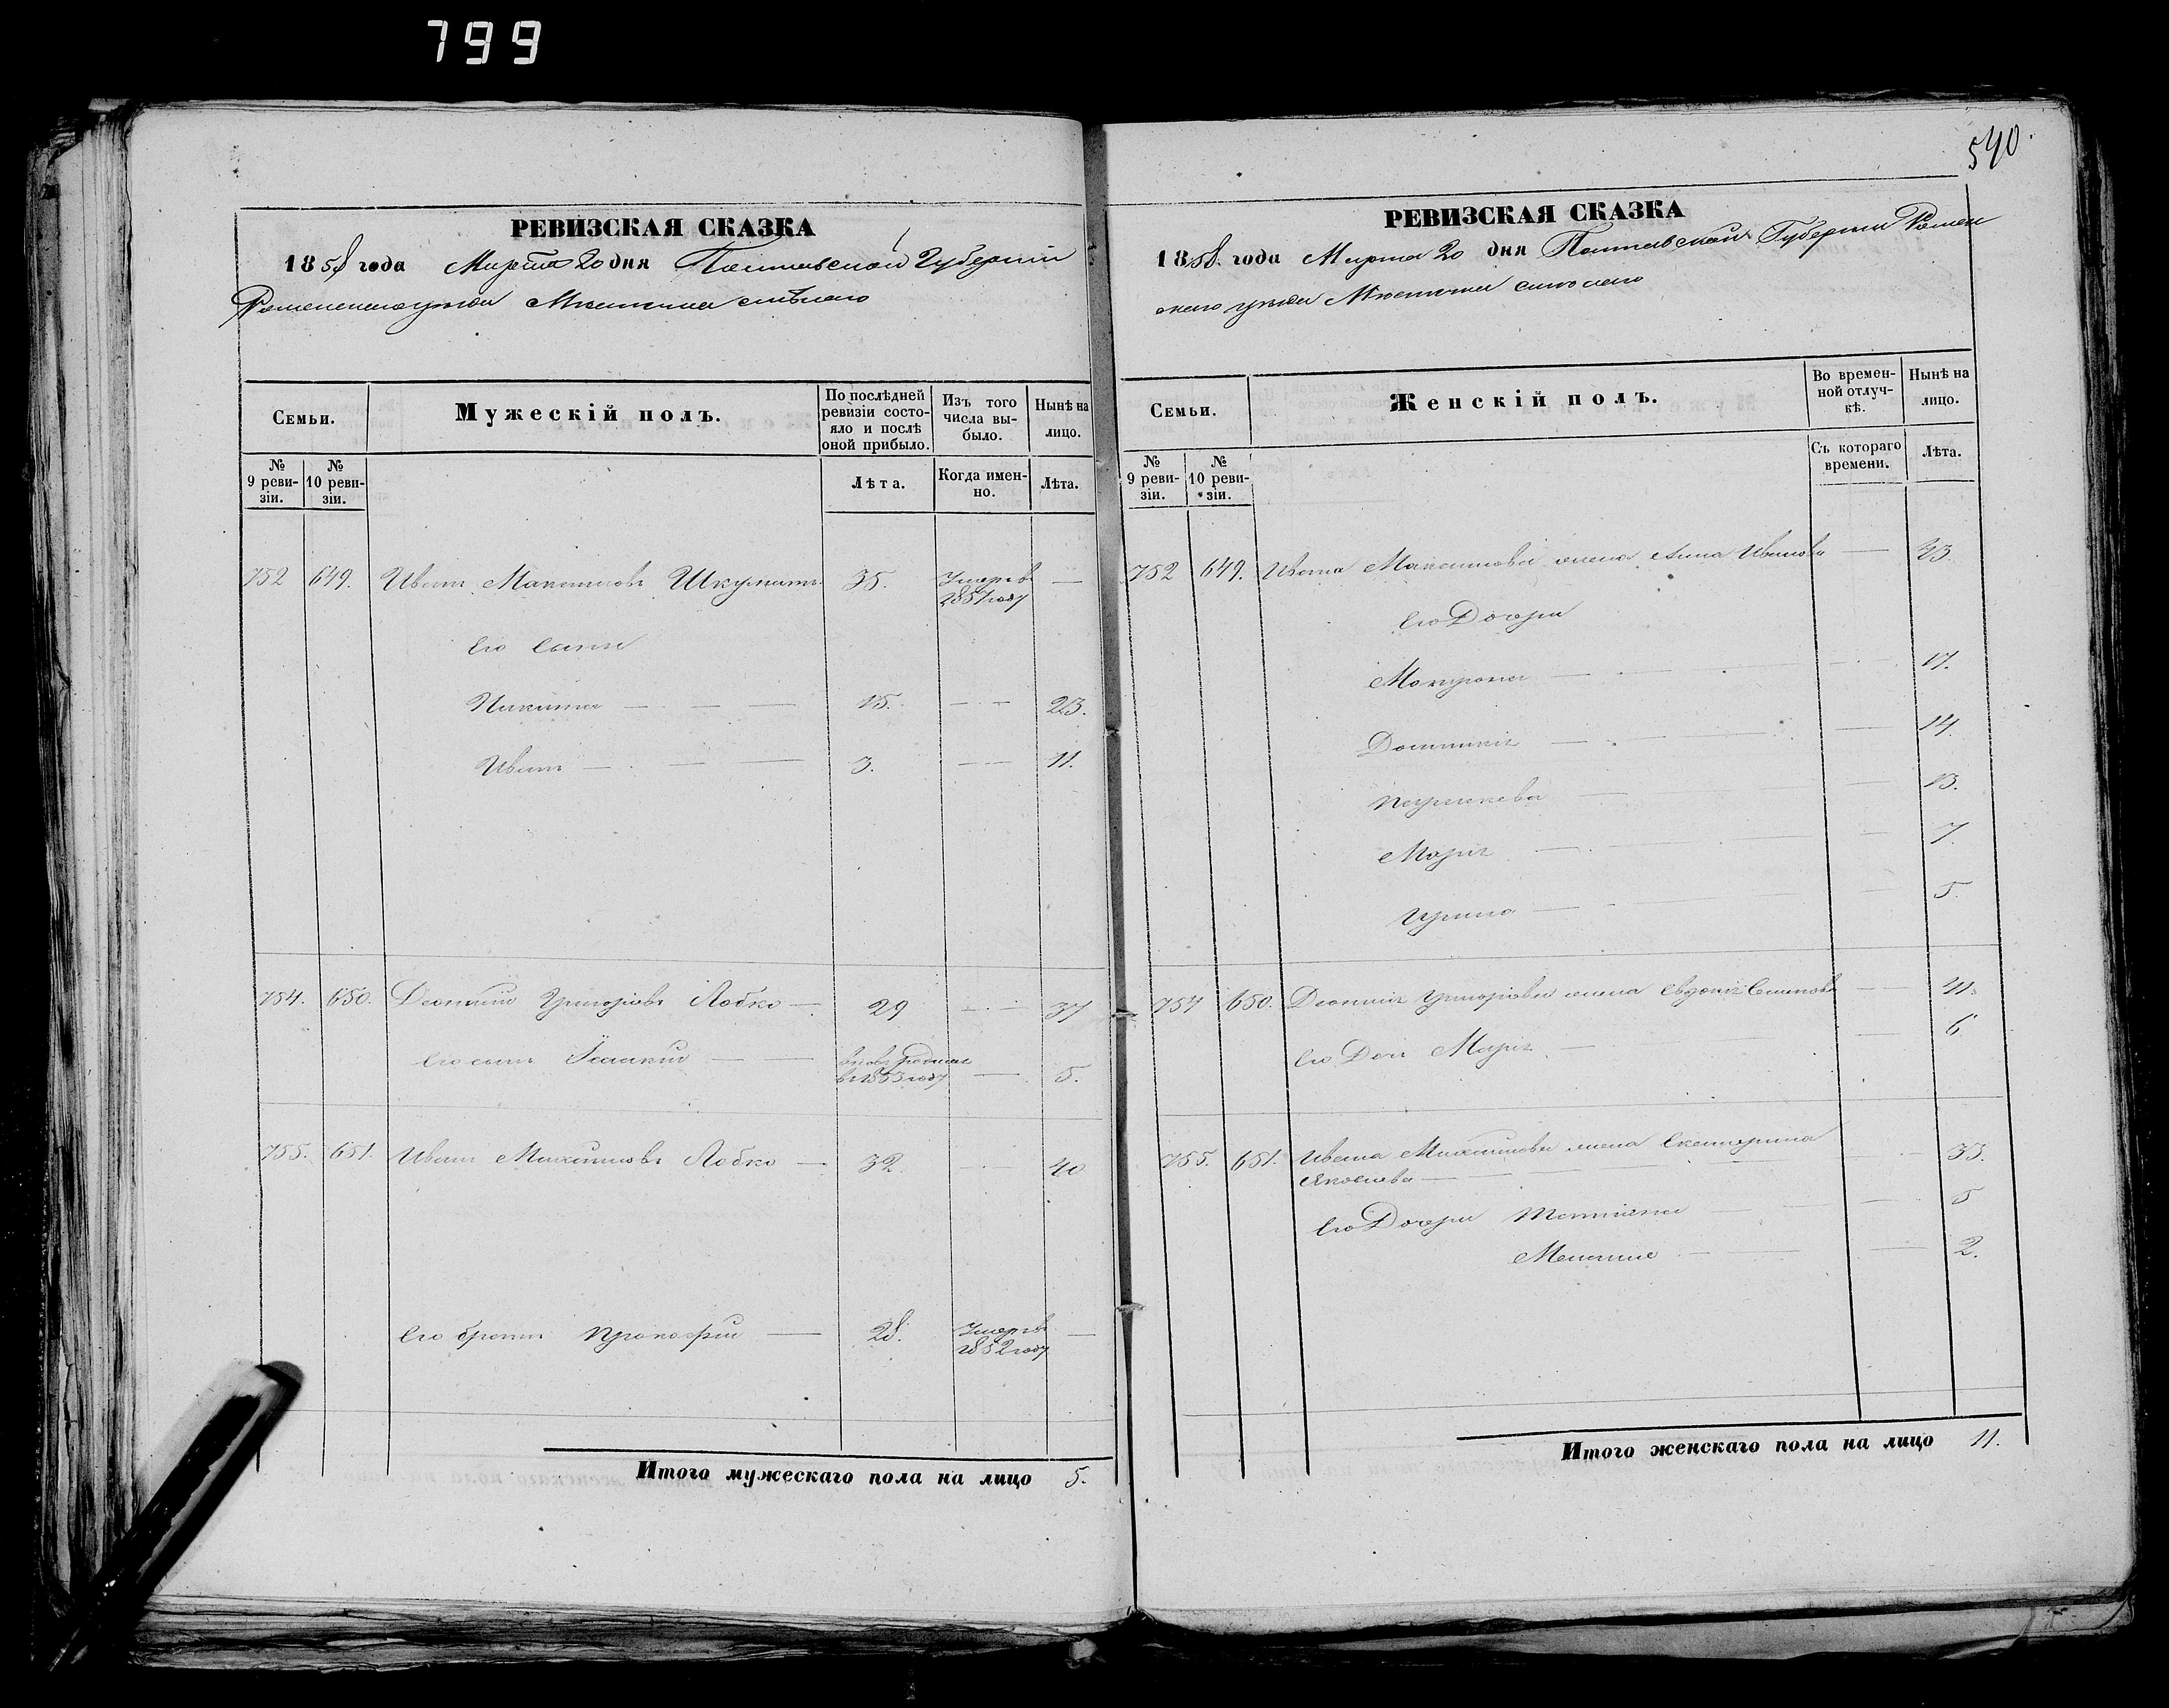 799
540.
РЕВИЗСКАЯ СКАЗКА
1858 года Марта 20 дня Полтавской Губерніи
Роменскаго уѣзда Мѣстечка Смѣлаго
Семьи.
Мужескій полъ.
По послѣдней ревизіи состояло и послѣ оной прибыло.
Изъ того числа выбыло.
Нынѣ на лицо.
№ 9 ревизіи.
№ 10 ревизіи.
Лѣта.
Когда именно.
Лѣта.
752 649. Иванъ Максимовъ 35. Умеръ въ 1857 году —
Его Сыны
Никита — 15. — 23.
Иванъ — 3. — 11.
754. 650. Леонтій Григоріовъ Лобко — 29 — 37
Его сынъ Іоакий — вновь родился въ 1853 году — 5.
755. 651. Иванъ Максимовъ Лобко — 32 — 40
Его братъ Прокофій — 28. Умеръ въ 1852 году —
Итого мужескаго пола на лицо 5.
РЕВИЗСКАЯ СКАЗКА
1858. года Марта 20 дня Полтавской Губерніи Ромен
скаго уѣзда Мѣстечка Смѣлаго
Семьи.
Женскій полъ.
Во временной отлучкѣ.
Нынѣ на лицо.
№ 9 ревизіи.
№ 10 ревизіи.
Съ котораго времени.
Лѣта.
752 649. Ивана Максимова жена Анна Иванова — 43.
Его Дочери
Мокрина — 17.
Домникія — 14.
Параскева — 13.
Марія — 7.
Ирина — 5.
754 650. Леонтія Григоріова жена Евдокія Семенова — 41.
Его Дочь Марія — 6
755. 651. Ивана Максимова жена Екатерина
Яковлева — 33.
Его Дочери Татіана — 5
Меланія — 2.
Итого женскаго пола на лицо 11.